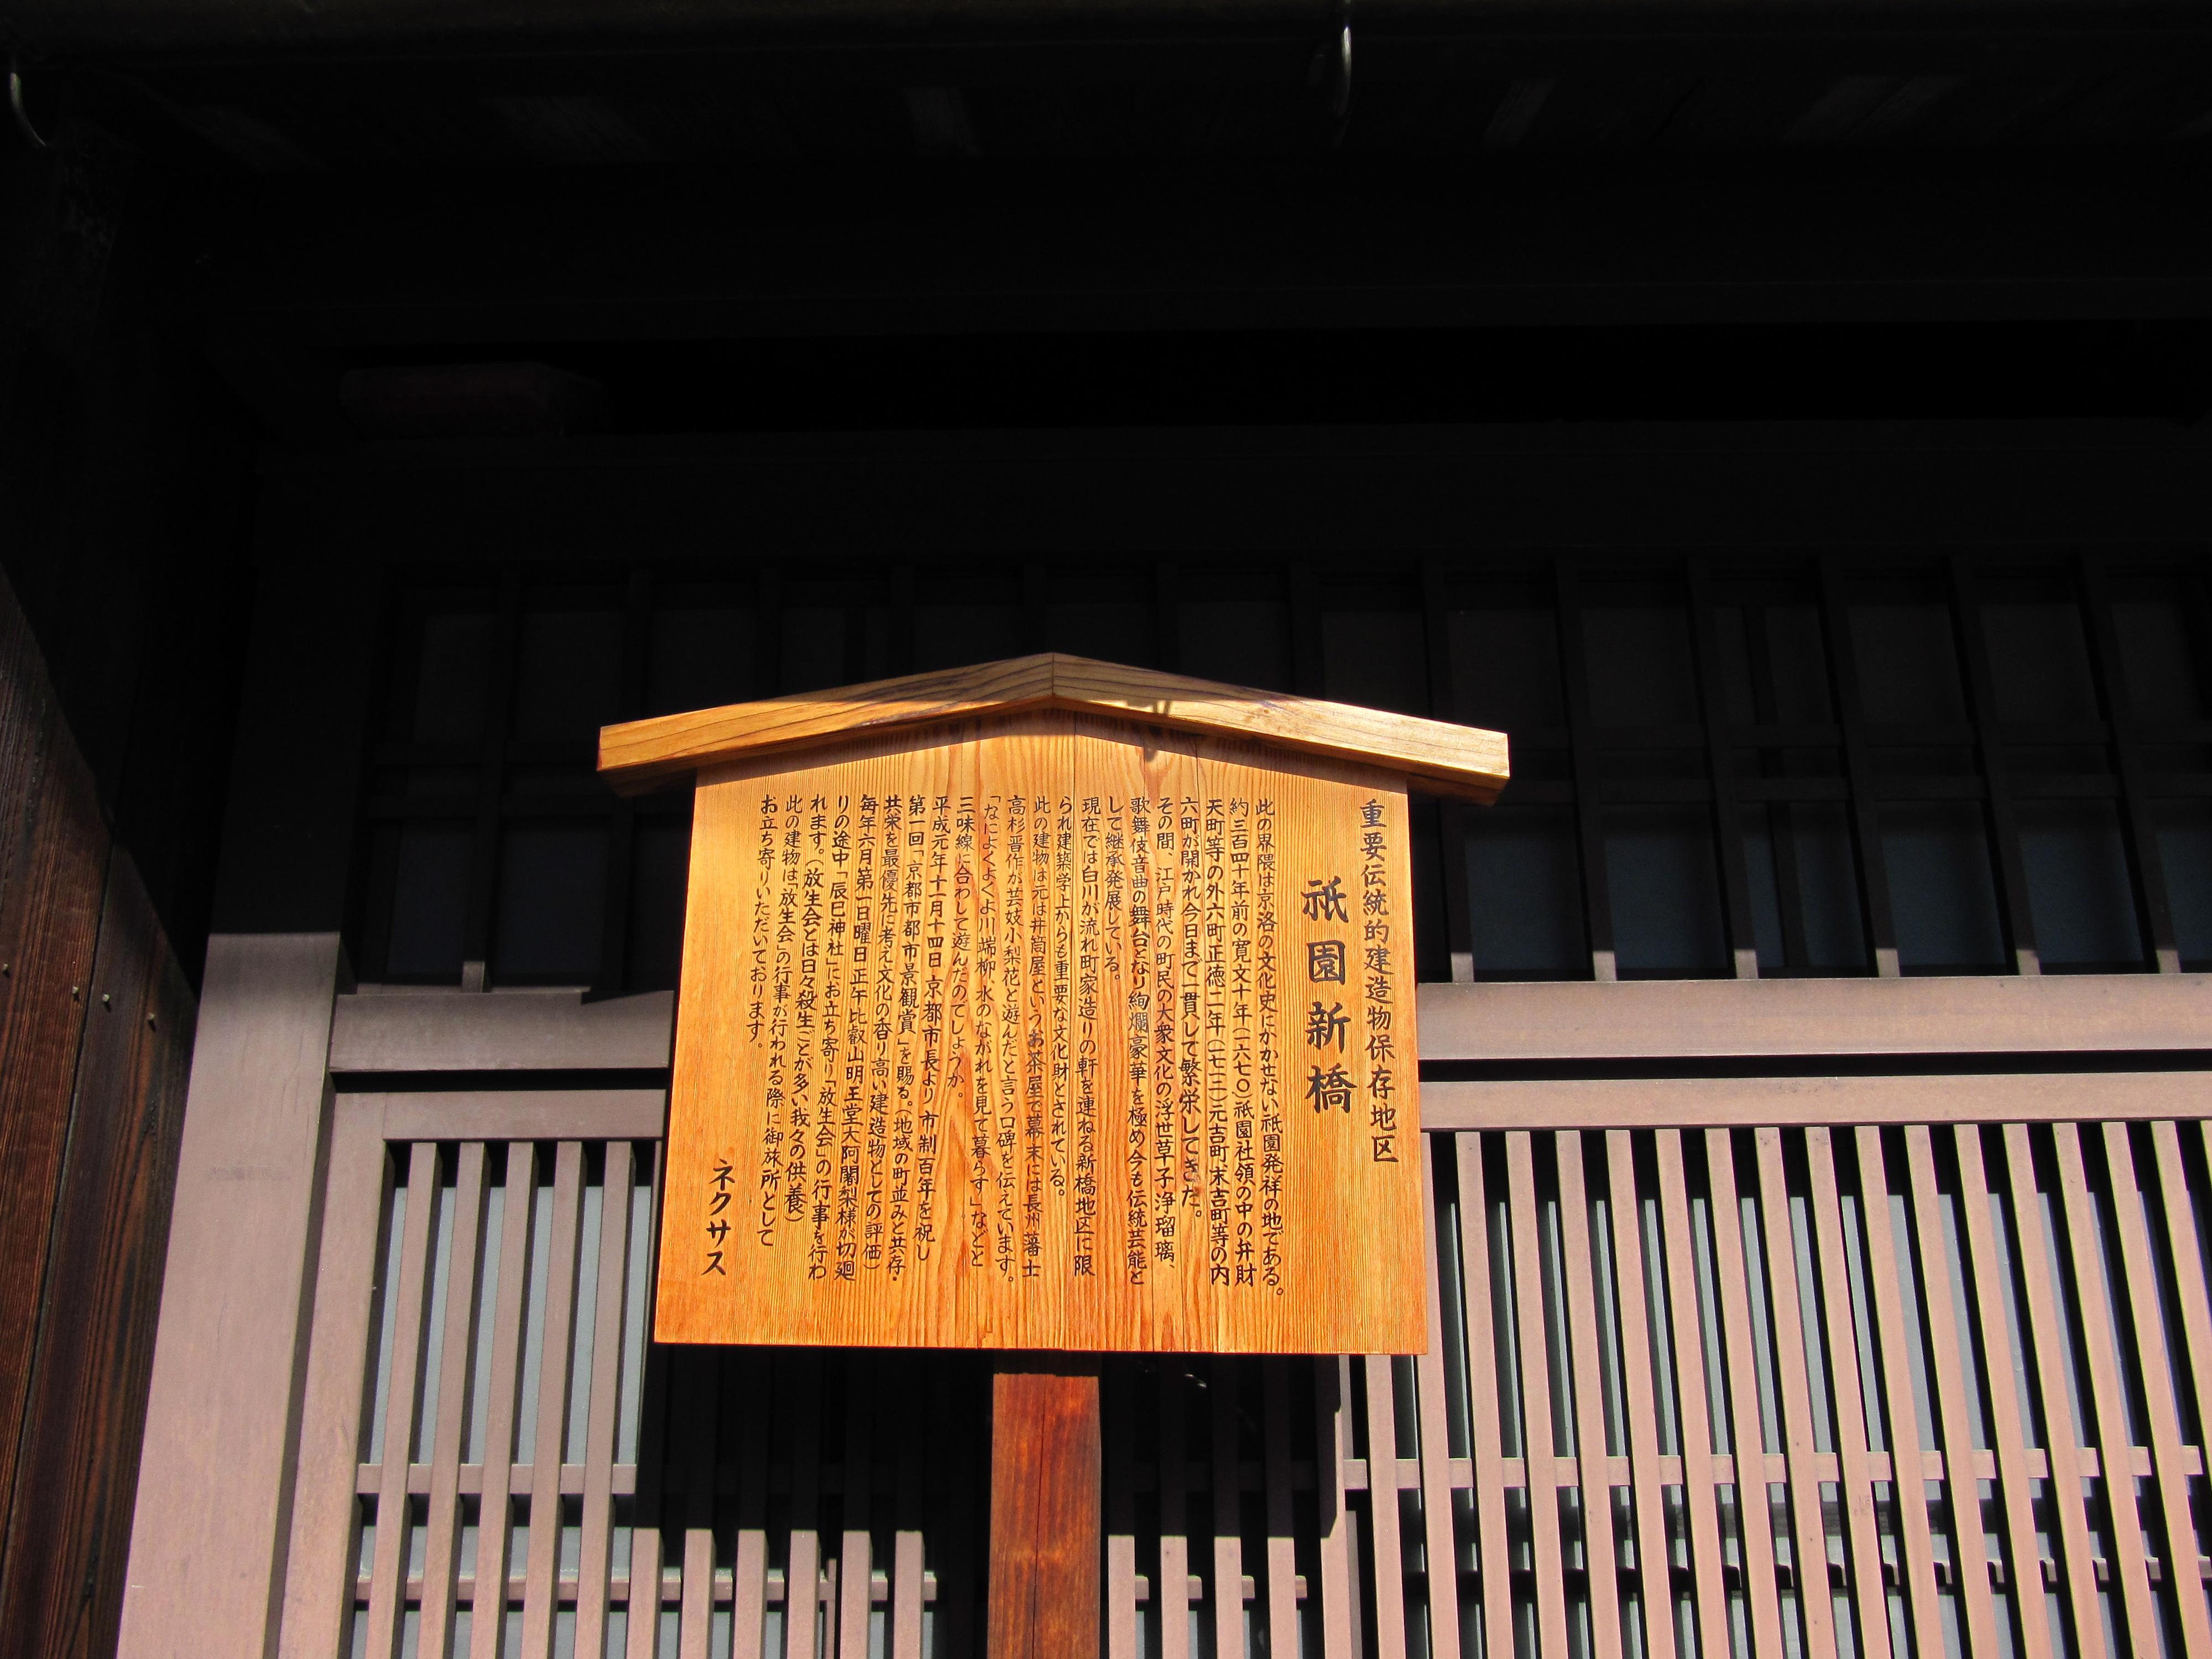 重要伝統的建造物保存地区
祇園新橋
此の界隈は京洛の文化史にかかせない祇園発祥の地である。
約三百四十年前の寛文十年(一六七〇)祇園社領の中の弁財
天町等の外六町正徳二年(一七一二)元吉町末吉町等の内
六町が開かれ今日まで一貫して繁栄してきた。
その間、江戸時代の町民の大衆文化の浮世草子浄瑠璃、
歌舞伎音曲の舞台となり絢爛豪華を極め今も伝統芸能と
して継承発展している。
現在では白川が流れ町家造りの軒を連ねる新橋地区に限
られ建築学上からも重要な文化財とされている。
此の建物は元は井筒屋というお茶屋で幕末には長州藩士
高杉晋作が芸妓小梨花と遊んだと言う口碑を伝えています。
「なによくよくよ川端柳、水のながれを見て暮らす」などと
三味線に合わして遊んだのでしょうか。
平成元年十一月十四日京都市長より市制百年を祝し
第一回「京都市都市景観賞」を賜る。(地域の町並みと共存・
共栄を最優先に考え文化の香り高い建造物としての評価)
毎年六月第一日曜日正午比叡山明王堂大阿闍梨様が切廻
りの途中「辰巳神社」にお立ち寄り「放生会」の行事を行わ
れます。(放生会とは日々殺生ごとが多い我々の供養)
此の建物は「放生会」の行事が行われる際に御旅所として
お立ち寄りいただいております。
ネクサス